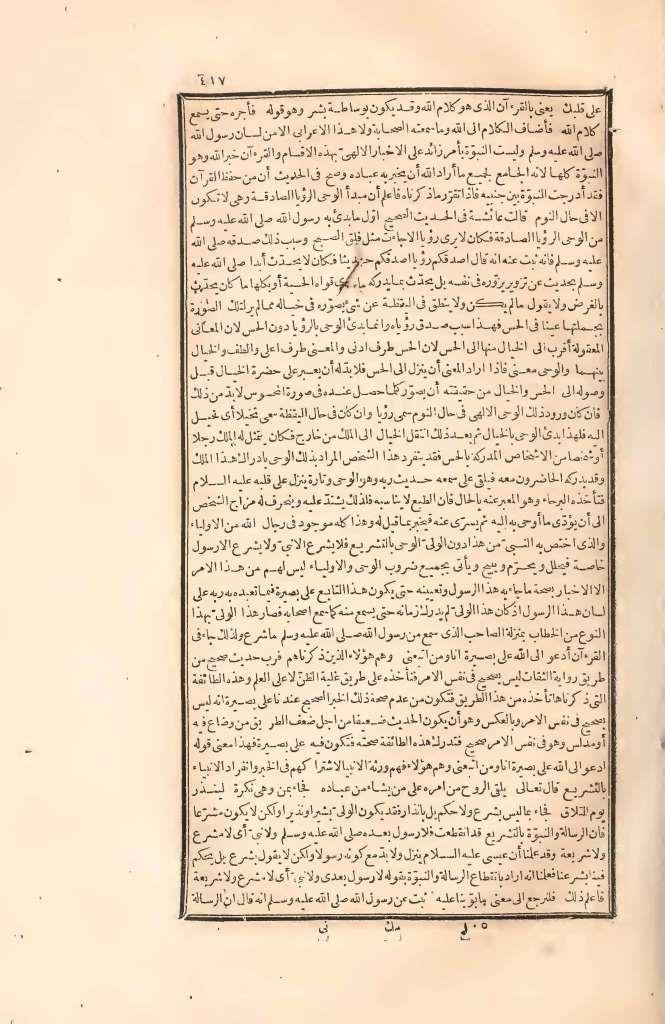 ٤١٧
على قلبك يعنى بالقرءآن الذى هو كلام الله وقد يكون بوساطة بشر وهو قوله فأجره حتى يسمع
كلام الله فأضاف الكلام الى الله وما سمعته الصحابة ولا هذا الاعرابى الا من لسان رسول الله
صلى الله عليه وسلم وليست النبوّة بأمر زائد على الاخبار الالهىّ بهذه الاقسام والقرءآن خبر الله وهو
النبوّة كلها لانه الجامع لجميع ما أراد الله أن يخبر به عباده وصح فى الحديث أن من حفظ القرآن
فقد أدرجت النبوّة بين جنبيه فاذا تقرّر ماذكرناه فاعلم أن مبدأ الوحى الرؤيا الصادقة وهى لا تكون
الا فى حال النوم قالت عائشة فى الحديث الصحيح اوّل ما بدئ به رسول الله صلى الله عليه وسلم
من الوحى الرؤيا الصادقة فكان لا يرى رؤيا الا جاءت مثل فلق الصبح وسبب ذلك صدقه صلى الله
عليه وسلم فانه ثبت عنه انه قال اصدقكم رؤيا اصدقكم حديثا فكان لا يحدّث أبدا صلى الله عليه
وسلم بحديث عن تزوير يزوّره فى نفسه بل يحدّث بما يدركه باحدى قواه الحسية أو بكلها ما كان يحدّث
بالغرض ولا يقول مالم يكن ولا ينطق فى اليقظة عن شئ يصوّره فى خياله مما لم ير لتلك الصورة
بجملتها عينا فى الحس فهذا سبب صدق رؤياه وانما بدئ الوحى بالرؤيا دون الحس لان المعانى
المعقولة أقرب الى الخيال منها الى الحس لان الحس طرف ادنى والمعنى طرف اعلى والطف والخيال
بينهما والوحى معنى فاذا اراد المعنى أن ينزل الى الحس فلابدّ له أن يعبر على حضرة الخيال قبل
وصوله الى الحس والخيال من حقيقته أن يصوّر كل ما حصل عنده فى صورة المحسوس لابدّ من ذلك
فان كان ورود ذلك الوحى الالهى فى حال النوم سمى رؤيا وان كان فى حال اليقظة سمى تخيلا أى تخيل
اليه فلهذا بدئ الوحى بالخيال ثم بعد ذلك انتقل الخيال الى الملك من خارج فكان يتمثل له الملك رجلا
أو شخصا من الاشخاص المدركة بالحس فقد ينفرد هذا الشخص المراد بذلك الوحى بادراك هذا الملك
وقد يدركه الحاضرون معه فيلقى على سمعه حديث ربه وهو الوحى وتارة ينزل على قلبه عليه السلام
فتأخذه البرحاء وهو المعبر عنه بالحال فان الطبع لا يناسبه فلذلك يشتدّ عليه وينحرف له مزاج الشخص
الى أن يؤدّى ما أوحى به اليه ثم يسرّى عنه فيخبر بما قيل له وهذا كله موجود فى رجال الله من الاولياء
والذى اختص به النبىّ من هذا دون الولىّ الوحى بالتشريع فلا يشرع الا نبىّ ولا يشرع الا رسول
خاصة فيحلل ويحرّم ويبيح ويأتى بجميع ضروب الوحى والاولياء ليس لهم من هذا الامر
الا الاخبار بصحة ما جاء به هذا الرسول وتعيينه حتى يكون هذا التابع على بصيرة فيما تعبده به ربه على
لسان هذا الرسول اذ كان هذا الولىّ لم يدرك زمانه حتى يسمع منه كما سمع اصحابه فصار هذا الولىّ بهذا
النوع من الخطاب بمنزلة الصاحب الذى سمع من رسول الله صلى الله عليه وسلم ما شرع ولذلك جاء فى
القرءآن أدعو الى الله على بصيرة انا ومن اتبعنى وهم هؤلاء الذين ذكرناهم فرب حديث صحيح من
طريق رواية الثقات ليس بصحيح فى نفس الامر فنأخذه على طريق غلبة الظنّ لا على العلم وهذه الطائفة
التى ذكرناها تأخذه من هذا الطريق فتكون من عدم صحة ذلك الخبر الصحيح عندنا على بصيرة انه ليس
بصحيح فى نفس الامر وبالعكس وهو أن يكون الحديث ضعيفا من اجل ضعف الطريق من وضاع فيه
أو مدلس وهو فى نفس الامر صحيح فتدرك هذه الطائفة صحته فتكون فيه على بصيرة فهذا معنى قوله
ادعو الى الله على بصيرة انا ومن اتبعنى وهم هؤلاء فهم ورثة الانبياء لاشتراكهم فى الخبر وانفراد الانبياء
بالتشريع قال تعالى يلقى الروح من امره على من يشاء من عباده فجاء بمن وهى نكرة لينذر
يوم التلاق فجاء بما ليس بشرع ولا حكم بل بانذار فقد يكون الولىّ بشيرا ونذيرا ولكن لا يكون مشرّعا
فان الرسالة والنبوّة بالتشريع قد انقطعت فلا رسول بعده صلى الله عليه وسلم ولا نبىّ أى لا مشرع
ولا شريعة وقد علمنا أن عيسى عليه السلام ينزل ولابدّ مع كونه رسولا ولكن لا يقول بشرع بل يحكم
فينا بشرعنا فعلمنا انه اراد بانقطاع الرسالة والنبوّة بقوله لا رسول بعدى ولا نبىّ أى لا مشرع ولا شريعة
فاعلم ذلك فلنرجع الى معنى ما بوّبنا عليه ثبت عن رسول الله صلى الله عليه وسلم انه قال ان الرسالة